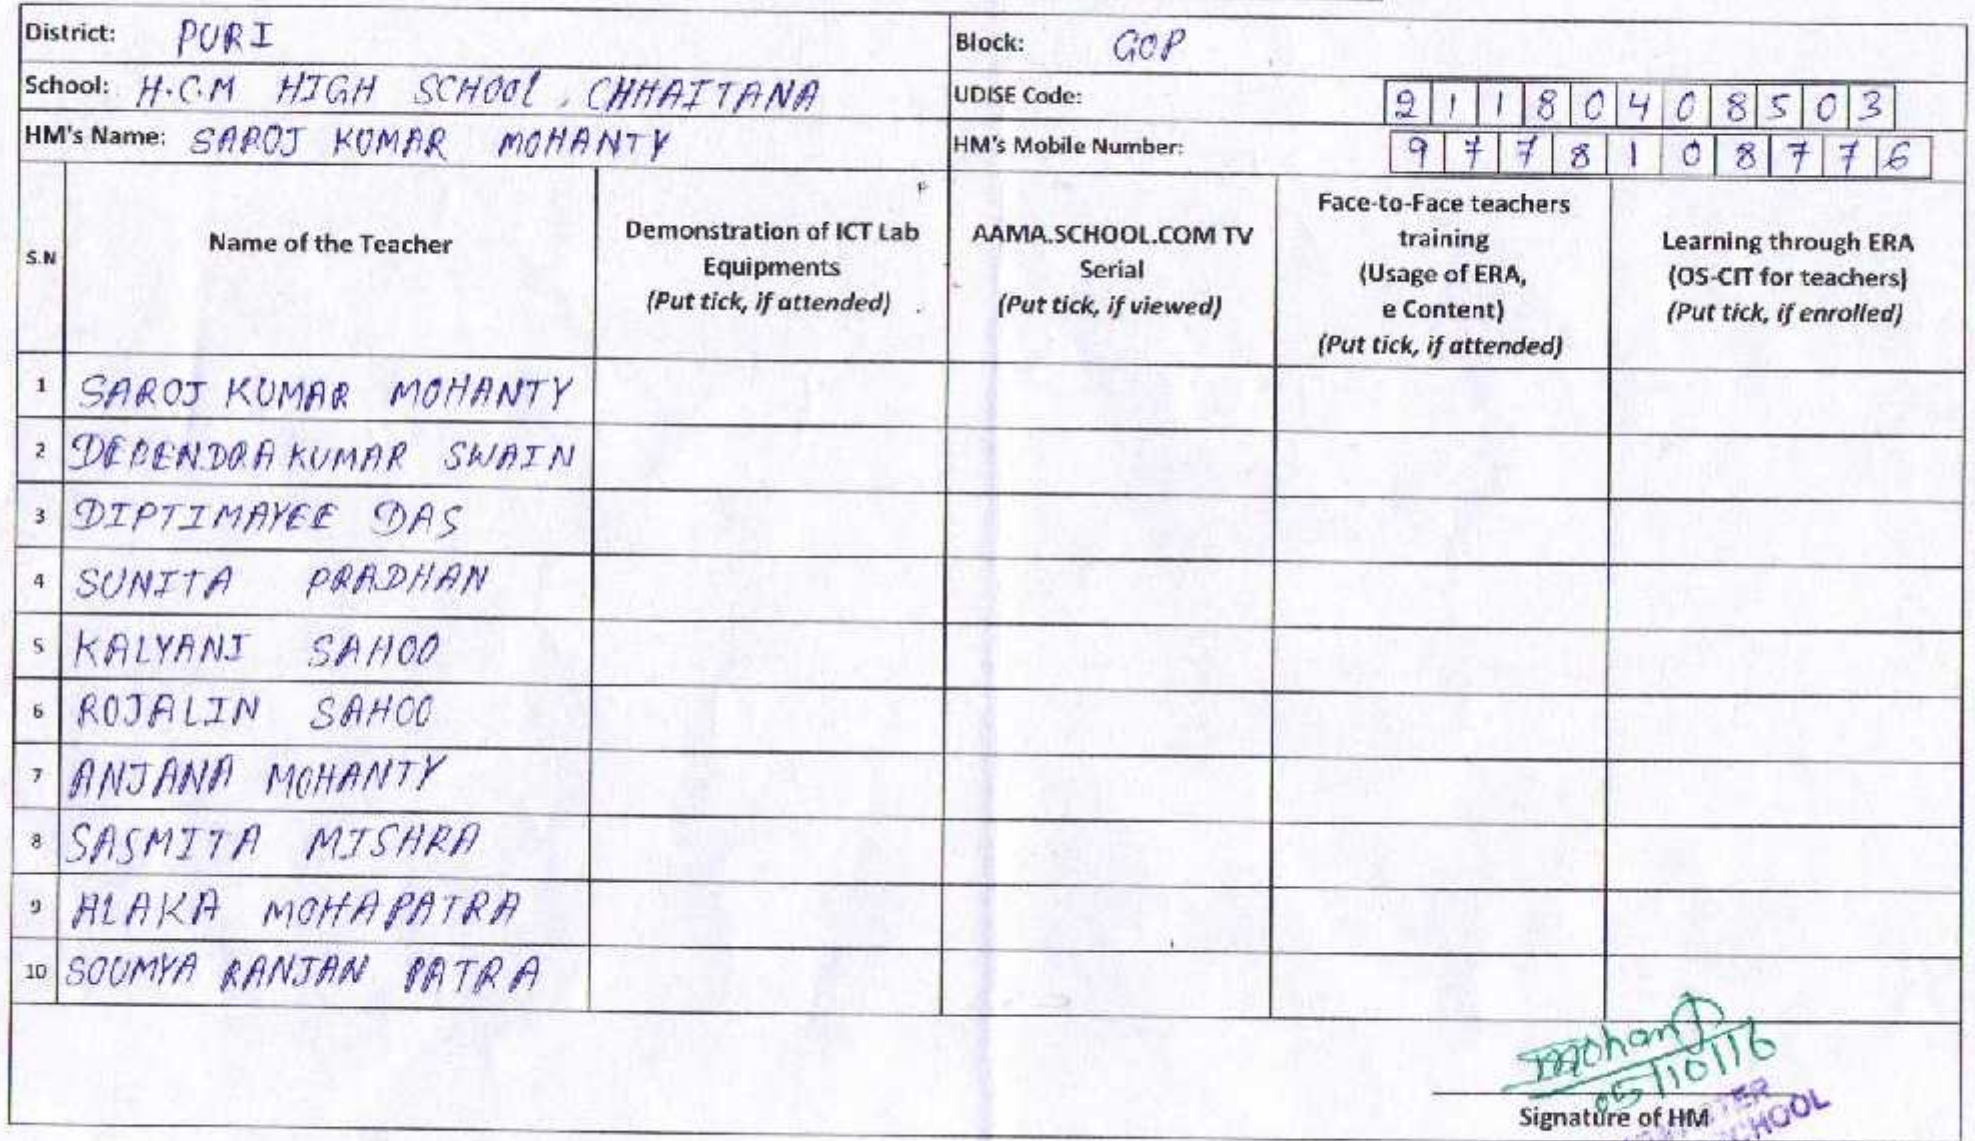 District: PURI
Block: GOP
School: H.C.M HIGH SCHOOL, CHHAITANA
UDISE Code: 2 1 1 8 0 4 0 8 5 0 3
HM's Name: SAROJ KUMAR MOHANTY
HM's Mobile Number: 9 7 7 8 1 0 8 7 7 6
S.N
Name of the Teacher
Demonstration of ICT Lab
Equipments
(Put tick, if attended)
AAMA.SCHOOL.COM TV
Serial
(Put tick, if viewed)
Face-to-Face teachers
training
(Usage of ERA,
e Content)
(Put tick, if attended)
Learning through ERA
(OS-CIT for teachers)
(Put tick, if enrolled)
1 SAROJ KUMAR MOHANTY
2 DEBENDRA KUMAR SWAIN
3 DIPTIMAYEE DAS
4 SUNITA PRADHAN
5 KALYANI SAHOO
6 ROJALIN SAHOO
7 ANJANA MOHANTY
8 SASMITA MISHRA
9 ALAKA MOHAPATRA
10 SOUMYA RANJAN PATRA
05/10/16
Signature of HM